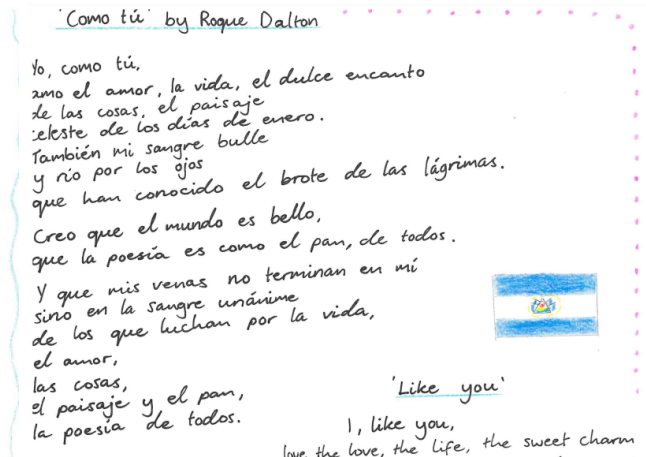 'Como tú' by Roque Dalton
Yo, como tú,
amo el amor, la vida, el dulce encanto
de las cosas, el paisaje
celeste de los días de enero.
También mi sangre bulle
y río por los ojos
que han conocido el brote de las lágrimas.
Creo que el mundo es bello,
que la poesía es como el pan, de todos.
Y que mis venas no terminan en mí
sino en la sangre unánime
de los que luchan por la vida,
el amor,
las cosas,
el paisaje y el pan,
la poesía de todos.
'Like you'
I, like you,
love the love, the life, the sweet charm